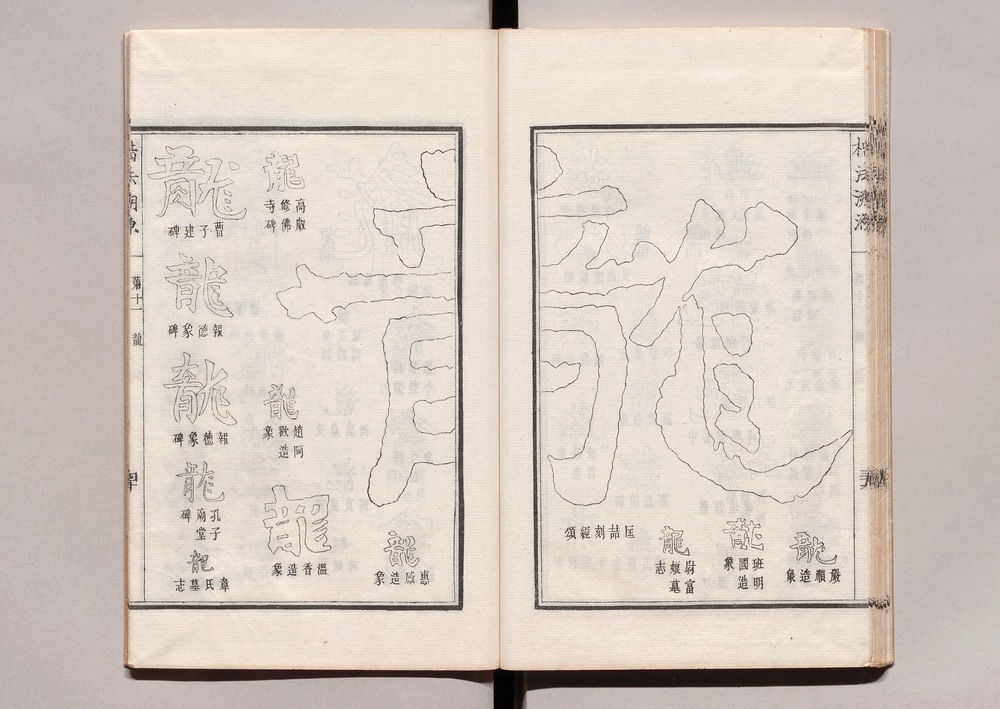 楷法溯源
龍
嚴順造象
龍
班明國造象
龍
尉富娘墓志
龍
匡喆刻經頌
龍
惠感造象
龍
高叡修佛寺碑
龍
趙阿歡造象
龍
溫香造象
龍
曹子建碑
龍
報德象碑
龍
報德象碑
龍
孔子廟堂碑
龍
韋氏墓志
楷法溯源 弟十一 龍